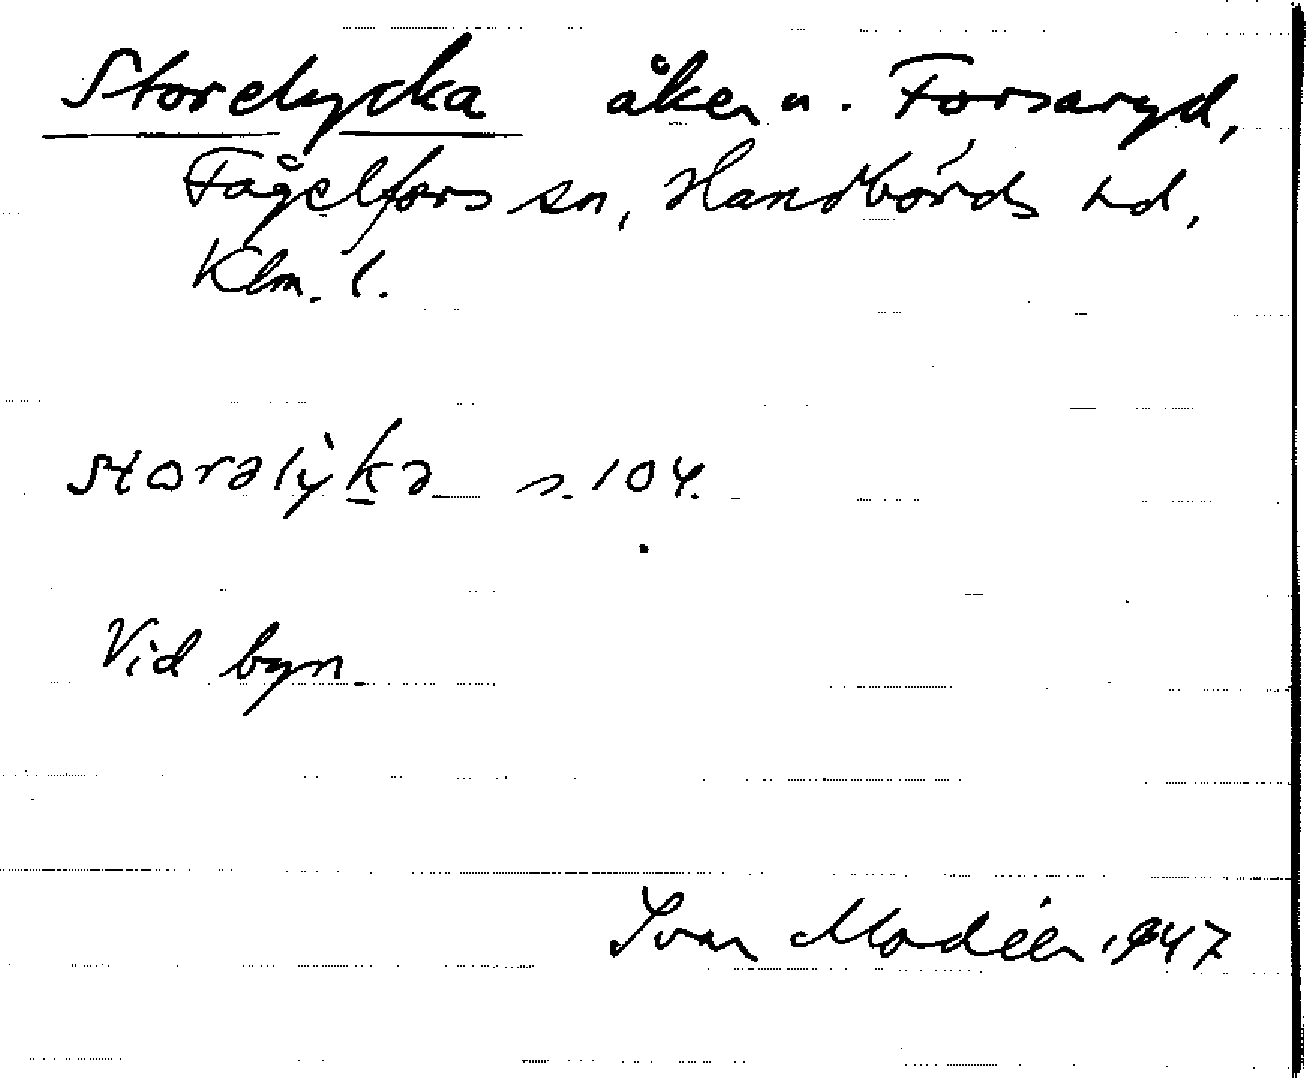 Storelycka åker u. Forsaryd,
Fågelfors sn, Handbörds hd,
Klm. l.
storəlỳk̲ə s. 104.
Vid byn.
Ivar Modéer 1947